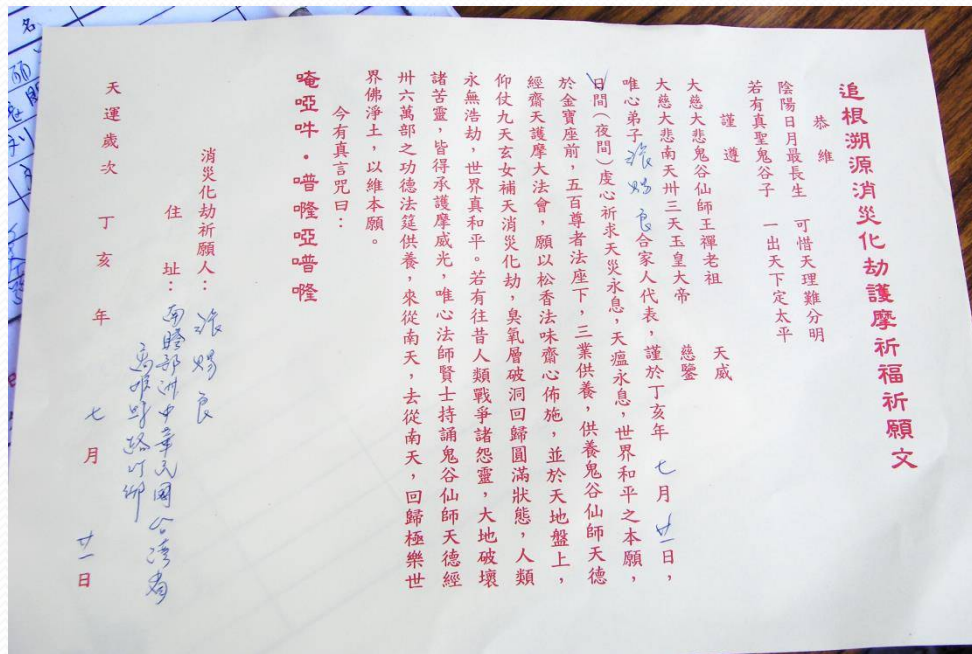 追根溯源消災化劫護摩祈福祈願文
恭維
陰陽日月最長生 可惜天理難分明
若有真聖鬼谷子 一出天下定太平
謹遵
大慈大悲鬼谷仙師王禪老祖 天威
大慈大悲南天卅三天玉皇大帝 慈鑒
唯心弟子張賜良合家人代表,謹於丁亥年 七月廿一日,
日間(夜間)虔心祈求天災永息,天瘟永息,世界和平之本願,
於金寶座前,五百尊者法座下,三業供養,供養鬼谷仙師天德
經齋天護摩大法會,願以松香法味齋心佈施,並於天地盤上,
仰仗九天玄女補天消災化劫,臭氧層破洞回歸圓滿狀態,人類
永無浩劫,世界真和平。若有往昔人類戰爭諸怨靈,大地破壞
諸苦靈,皆得承護摩威光,唯心法師賢士持誦鬼谷仙師天德經
卅六萬部之功德法筵供養,來從南天,去從南天,回歸極樂世
界佛淨土,以維本願。
今有真言咒曰:
唵啞吽・噆隆啞噆隆
消災化劫祈願人:張賜良
住 址:南瞻部洲中華民國台灣省
天運歲次 丁亥 年 七 月 廿一 日